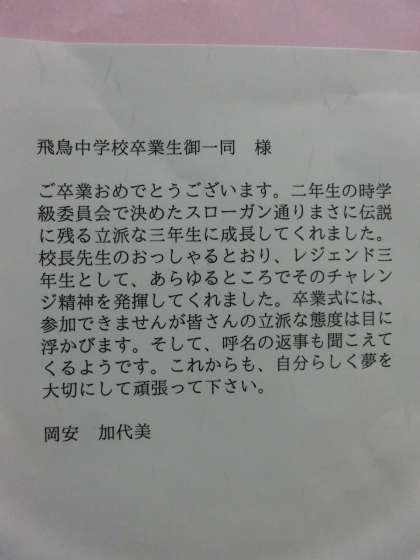 飛鳥中学校卒業生御一同　様
ご卒業おめでとうございます。二年生の時学
級委員会で決めたスローガン通りまさに伝説
に残る立派な三年生に成長してくれました。
校長先生のおっしゃるとおり、レジェンド三
年生として、あらゆるところでそのチャレン
ジ精神を発揮してくれました。卒業式には、
参加できませんが皆さんの立派な態度は目に
浮かびます。そして、呼名の返事も聞こえて
くるようです。これからも、自分らしく夢を
大切にして頑張って下さい。
岡安　加代美